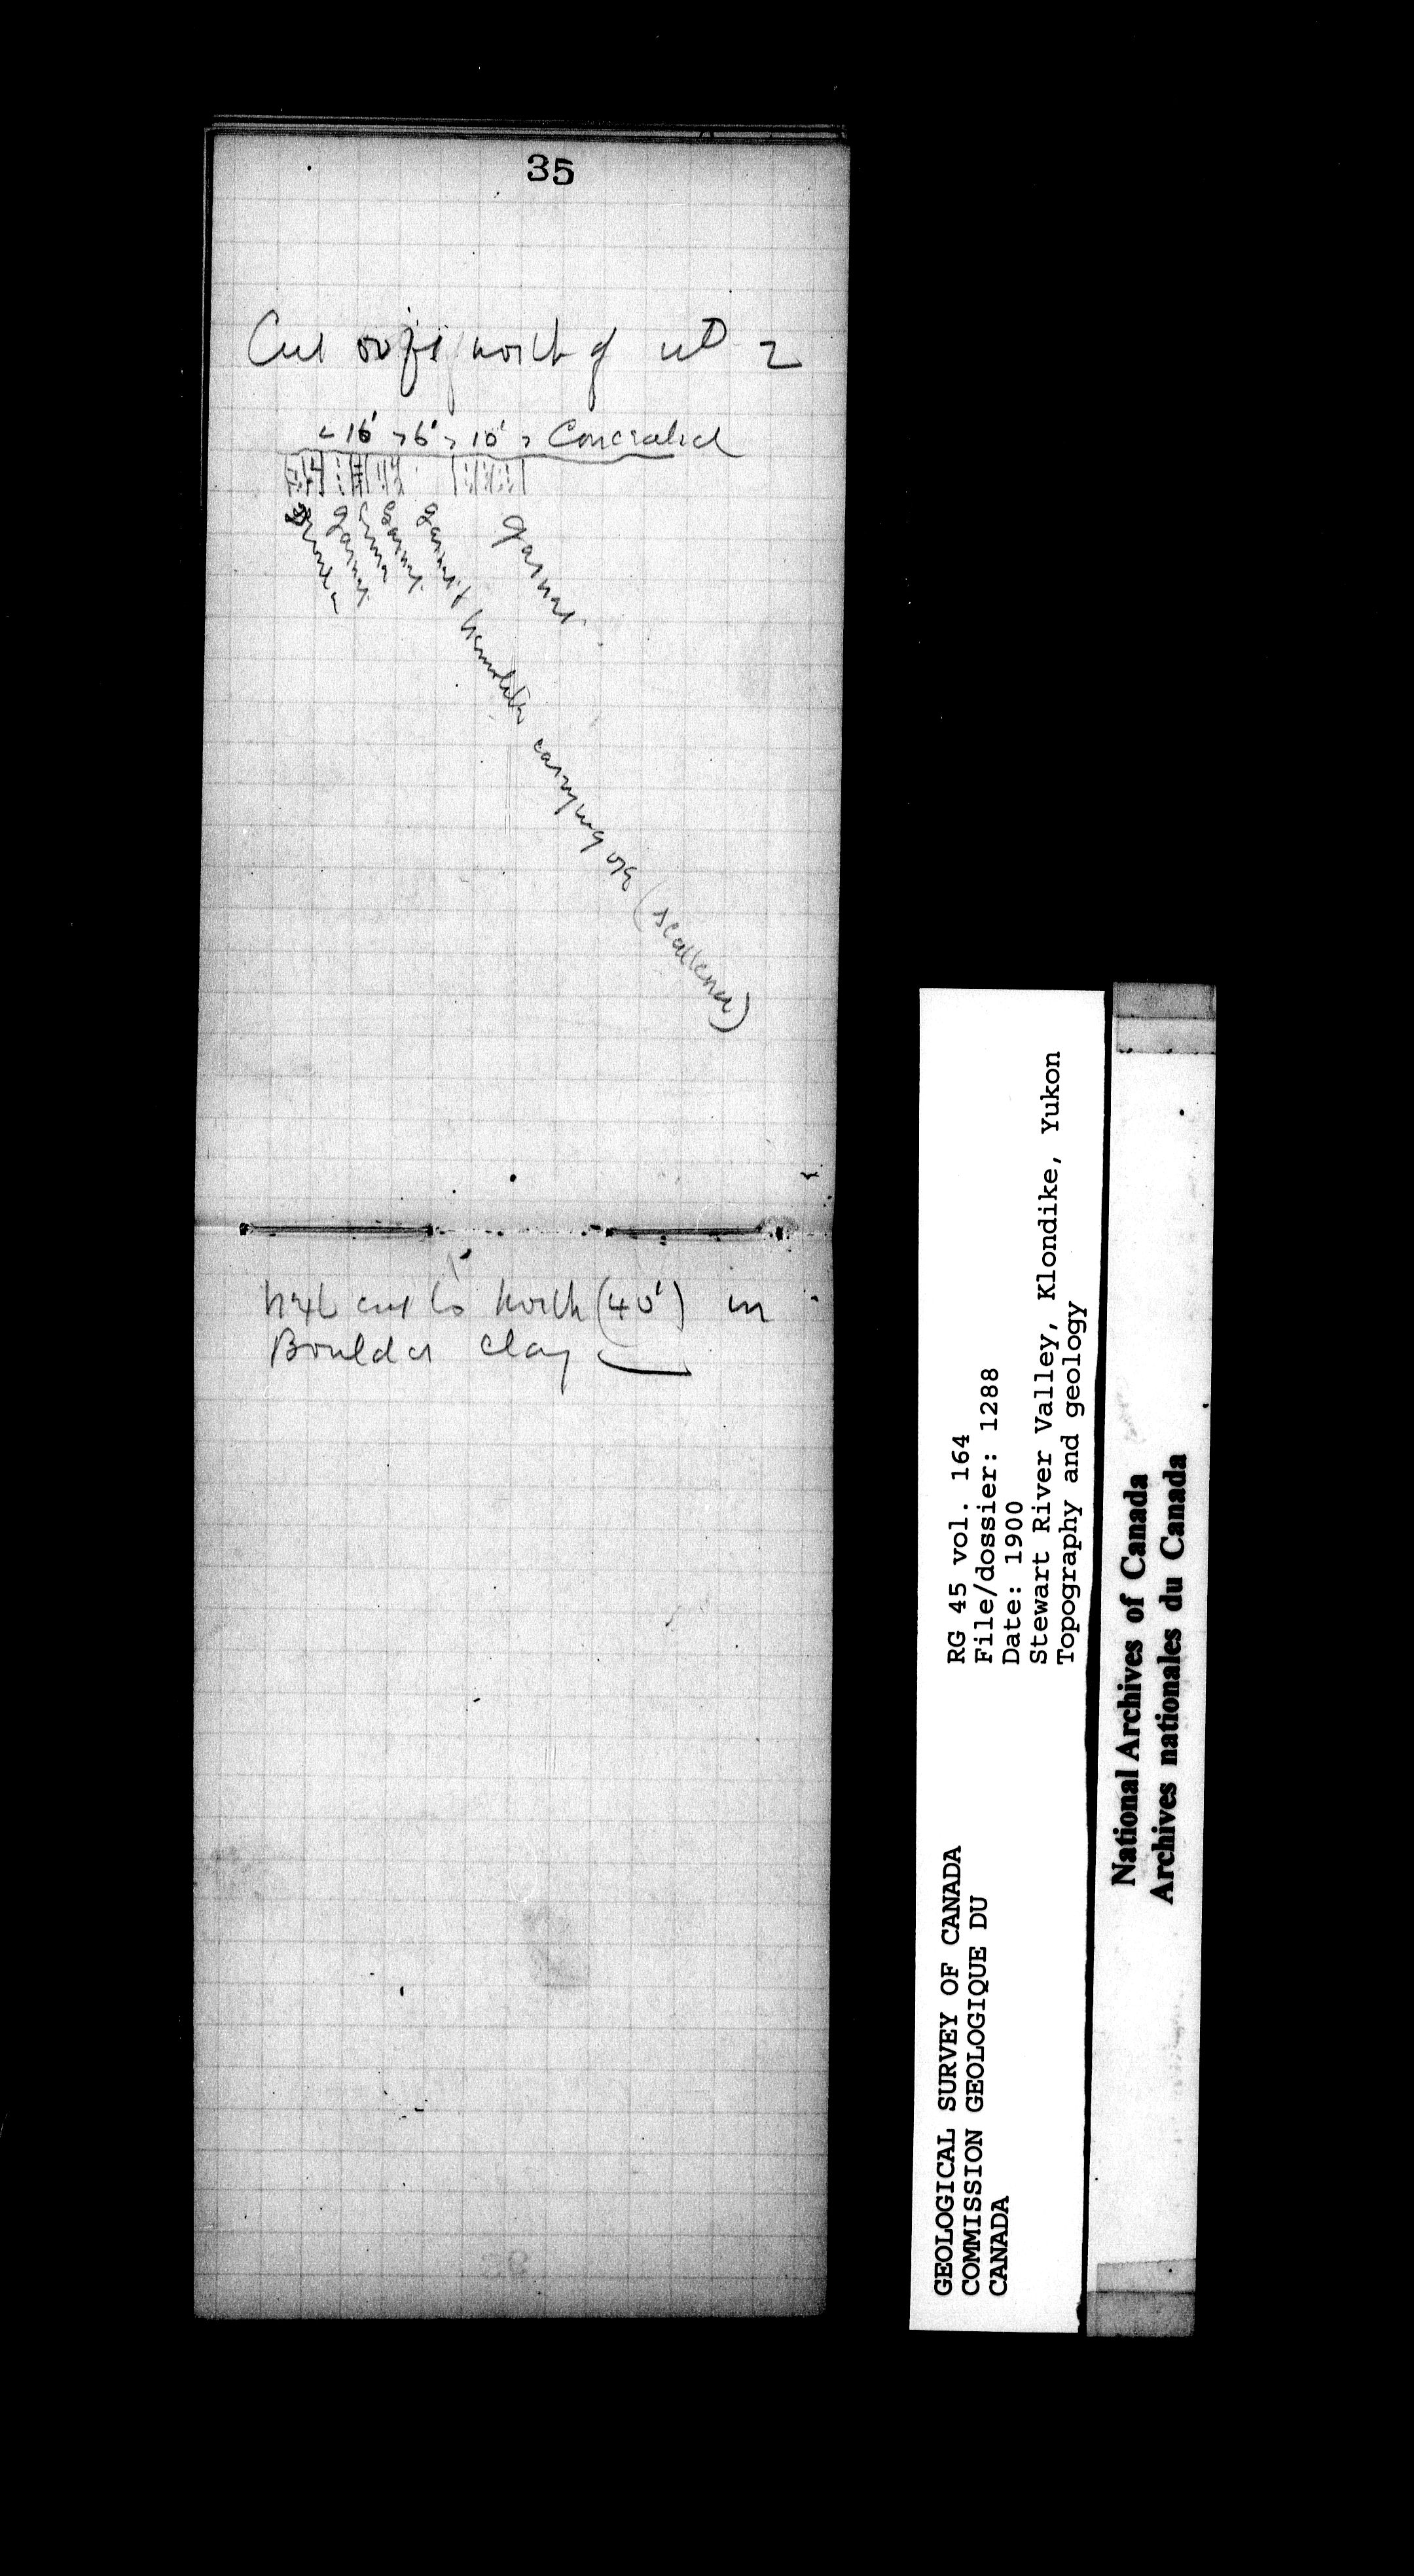 35
Cut 50 ft north of no 2
< 16' > 6' > 10' > Concealed
garnet
garnet
garnet & hematite carrying ore (scattered)
garnet
Next cut to North (40') in
Boulder clay
RG 45 vol. 164
File/dossier: 1288
Date: 1900
Stewart River Valley, Klondike, Yukon
Topography and geology
GEOLOGICAL SURVEY OF CANADA
COMMISSION GEOLOGIQUE DU
CANADA
National Archives of Canada
Archives nationales du Canada